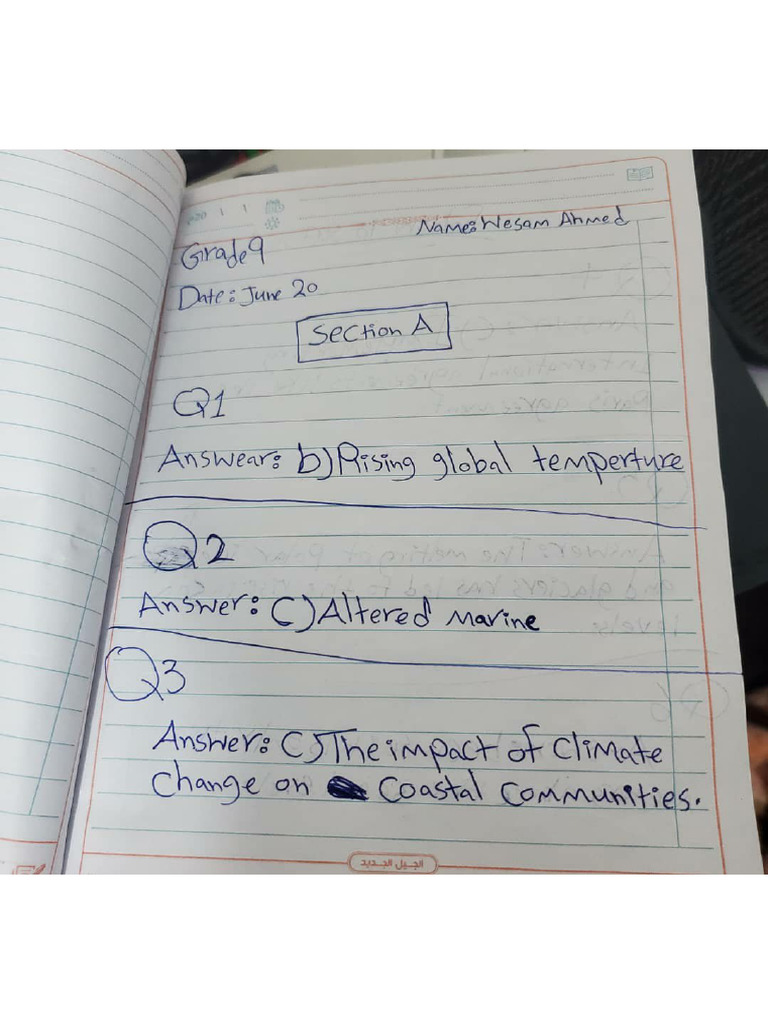 Name: Wesam Ahmed
Grade 9
Date: June 20
Section A
Q1
Answear: b) Rising global temperture
Q2
Answer: C) Altered Marine
Q3
Answer: C) The impact of Climate
Change on Coastal Communities.
الجيل الجديد